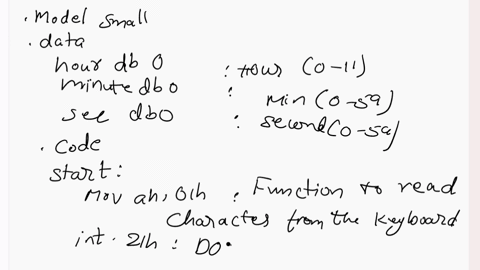 . Model small
. data
hour db 0 : Hour (0-11)
minute db 0 : min (0-59)
sec db0 : second (0-59)
. Code
start:
Mov ah, 01h : Function to read
Character from the Keyboard
int. 21h : DO